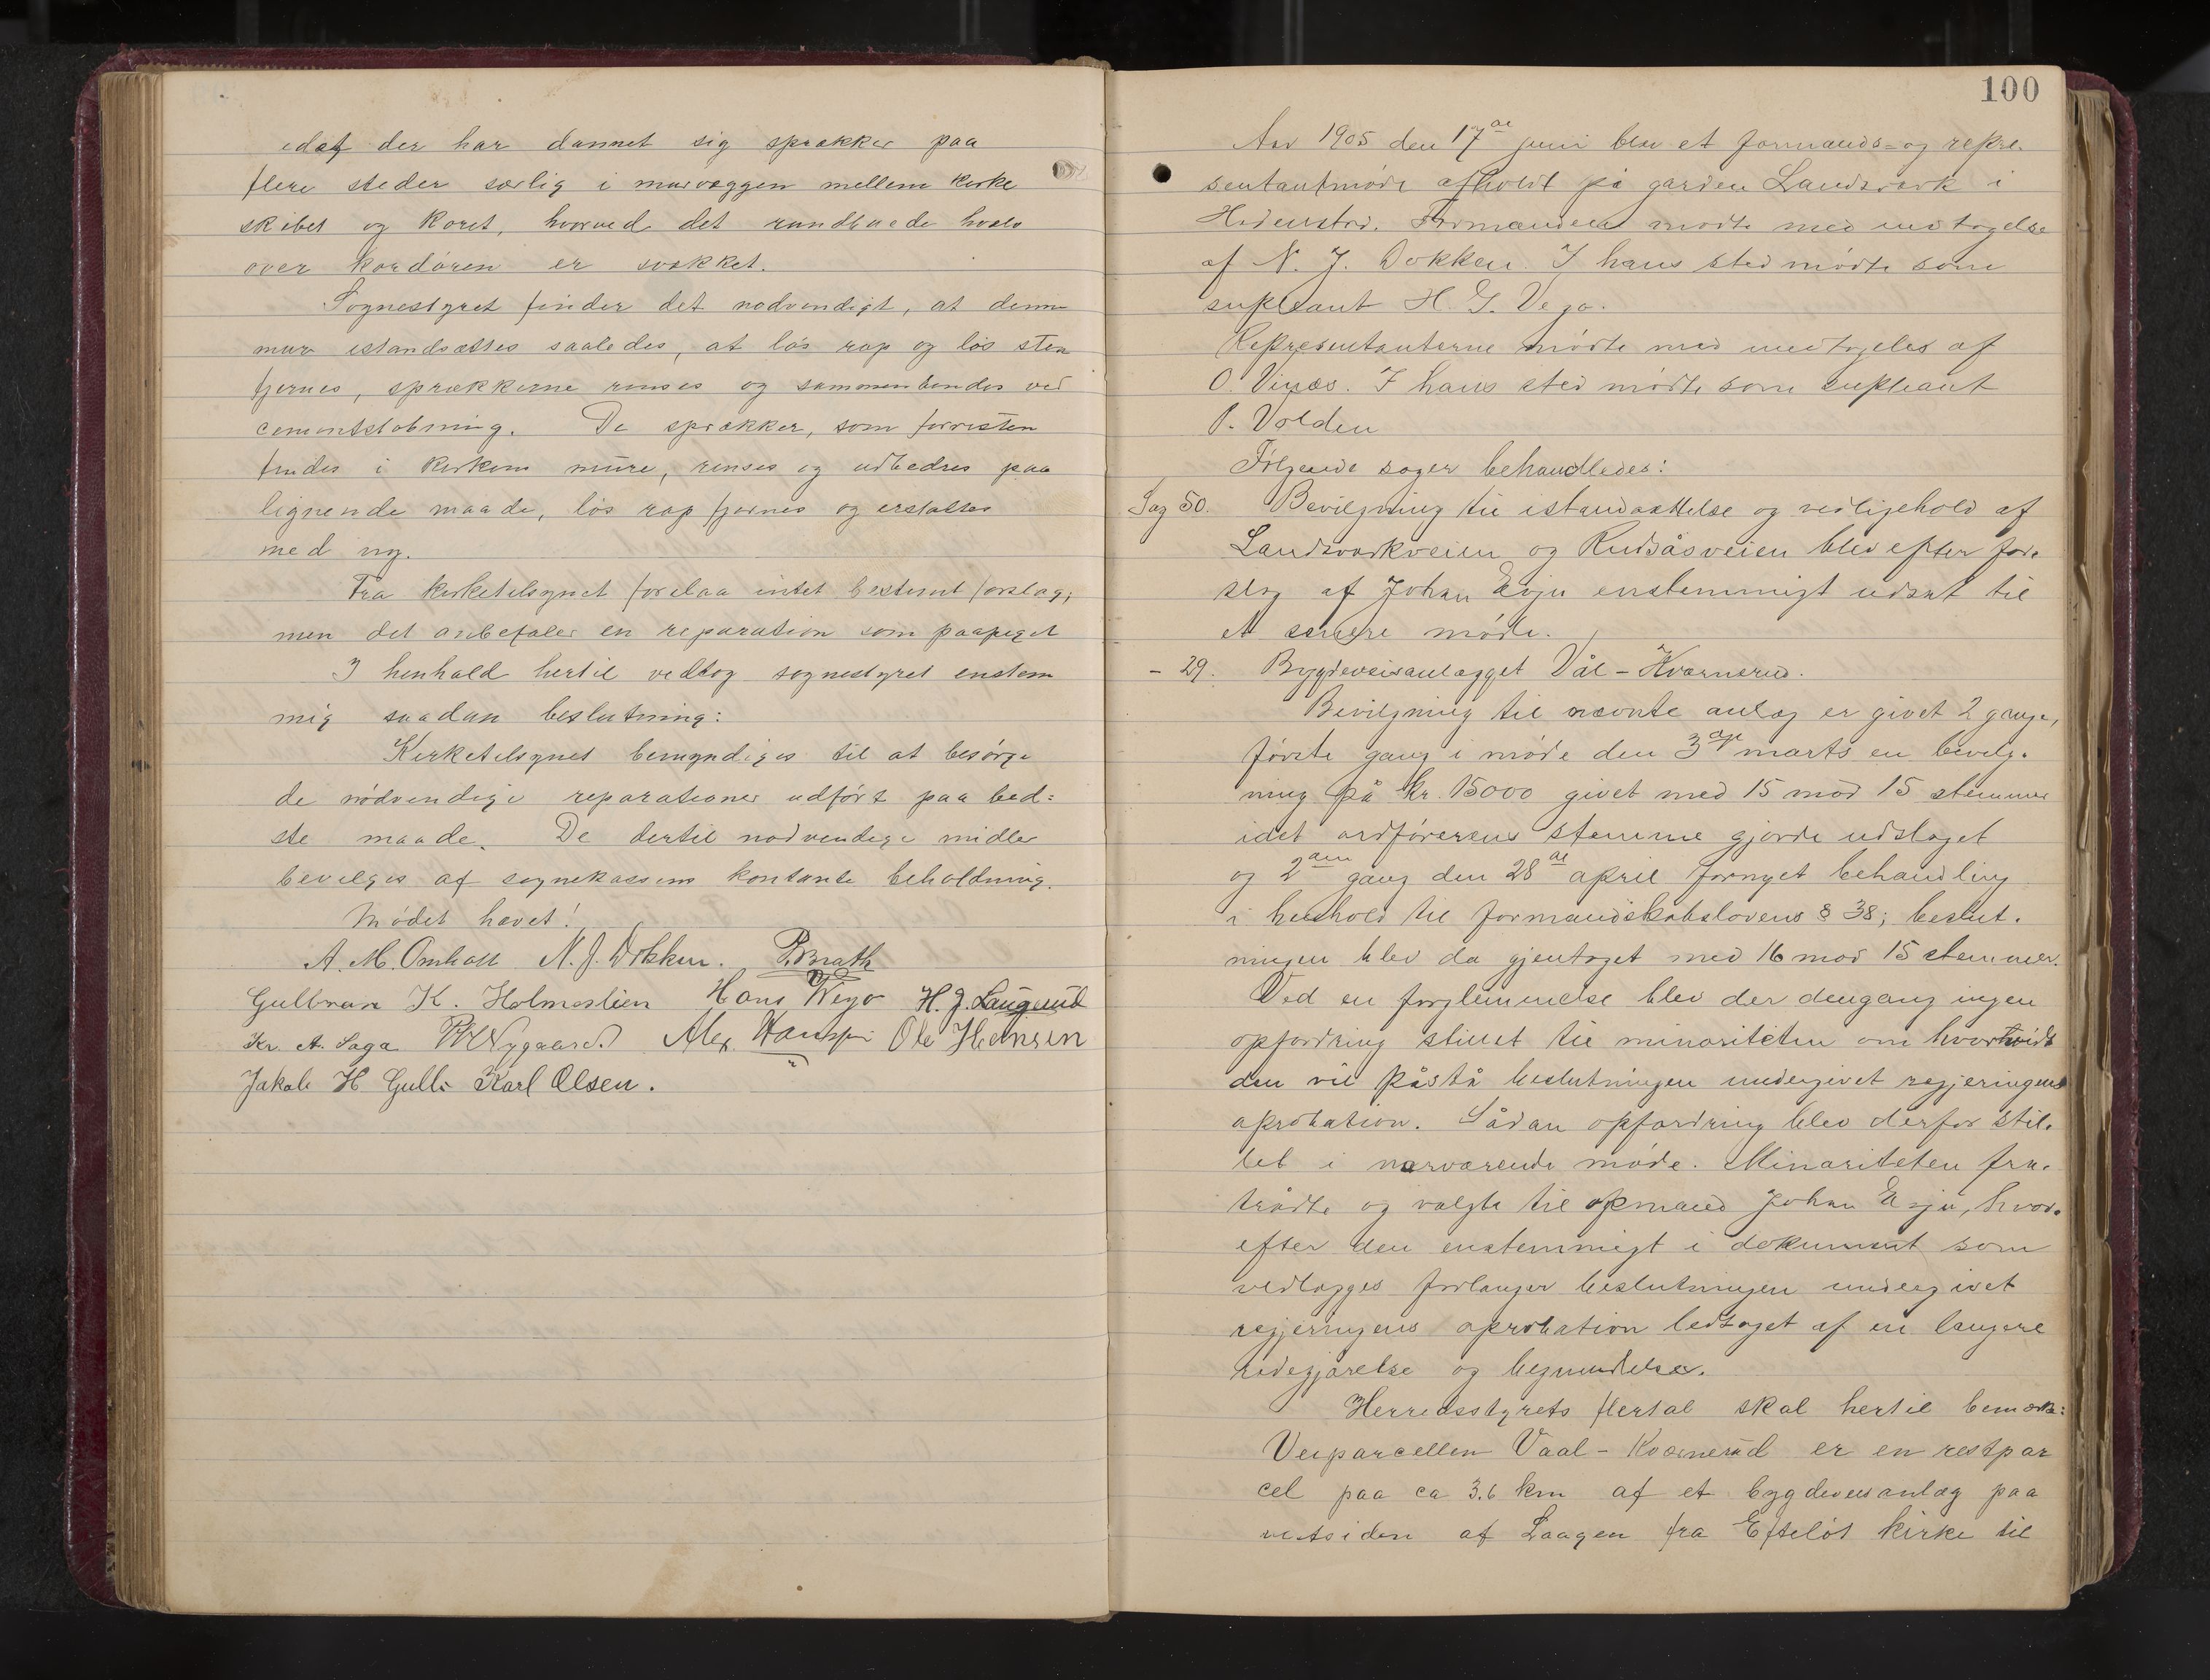 idet der har dannet sig sprækker paa
flere steder særlig i murvæggen mellem kirke
skibet og koret, hvorved det rundbuede hvælv
over kordøren er svækket.
Sognestyret finder det nødvendigt, at denne
mur istandsættes saaledes, at løs rap og løs sten
fjernes, sprækkerne renses og sammenbindes ved
cementstøbning. De sprækker, som forresten
findes i kirkens mure, renses og udbedres paa
lignende maade, løs rap fjernes og erstattes
med ny.
Fra kirketilsynet forelaa intet bestemt forslag,
men det anbefaler en reparation som paapeget
I henhold hertil vedtog sognestyret enstem
mig saadan beslutning:
Kirketilsynet bemyndiges til at besørge
de nødvendige reparationer udført paa bed=
ste maade. De dertil nødvendige midler
bevilges af sognekassens kontante beholdning.
Mødet hævet!
A. M. Omholt N. J. Dokken. P. Brath
Gulbran K. Holmeslien Hans Wego H. J. Langerud
Kr. A. Saga Nygaard Alex. Hansen Ole Hansen
Jakob H Gulli Karl Olsen.
100
Aar 1905 den 17de juni blev et formands- og repre-
sentantmøde afholdt på garden Landsværk i
Hedenstad. Formændene mødte med undtagelse
af N. J. Dokken. I hans sted mødte som
supleant H. G. Vego.
Representanterne mødte med undtagelse af
O. Vinæs. I hans sted mødte som supleant
P. Volden
Følgende sager behandledes:
Sag 50. Bevilgning til istandsættelse og vedligehold af
Landsværkveien og Rudsåsveien blev efter for-
slag af Johan Evju enstemmigt udsat til
et senere møde.
- 29. Bygdeveisanlægget Vål - Kværnerud.
Bevilgning til nævnte anlæg er givet 2 gange,
første gang i møde den 3die marts en bevilg-
ning på kr. 15000 givet med 15 mod 15 stemmer
idet ordførerens stemme gjorde udslaget
og 2den gang den 28de april fornyet behandling
i henhold til formandskabslovens § 38; beslut-
ningen blev da gjentaget med 16 mod 15 stemmer.
Ved en forglemmelse blev der dengang ingen
opfordring stillet til minoriteten om hvorvidt
den vil påstå beslutningen undergivet regjeringens
aprobation. Sådan opfordring blev derfor stil-
let i nærværende møde. Minoriteten fra-
trådte og valgte til opmand Johan Evju, hvor-
efter den enstemmigt i dokument som
vedlægges forlanger beslutningen undergivet
regjeringens aprobation ledsaget af en længere
redegjørelse og begrundelse.
Herredsstyrets flertal skal hertil bemærke:
Veiparcellen Vaal - Kværnerud er en restpar
cel paa ca 3.6 km af et bygdeveisanlæg paa
vestsiden af Laagen fra Efteløt kirke til